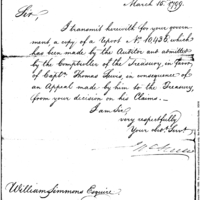 March 15. 1799.
Sir,
I transmit herewith for your govern-
ment a copy of a report No. 10,436, which
has been made by the Auditor and admitted
by the Comptroller of the Treasury, in favor
of Captn. Thomas Lewis, in consequence of
an Appeal made by him to the Treasury
from your decision on his Claims.
I am Sir
very respectfully
Your obt. Servt.
William Simmons Esquire